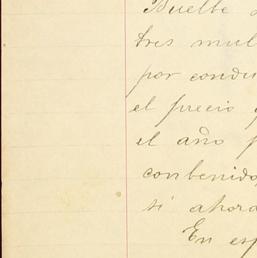 Buelbe
tres mul
por condu
el precio
el año p
conbenido
si ahora
En esp